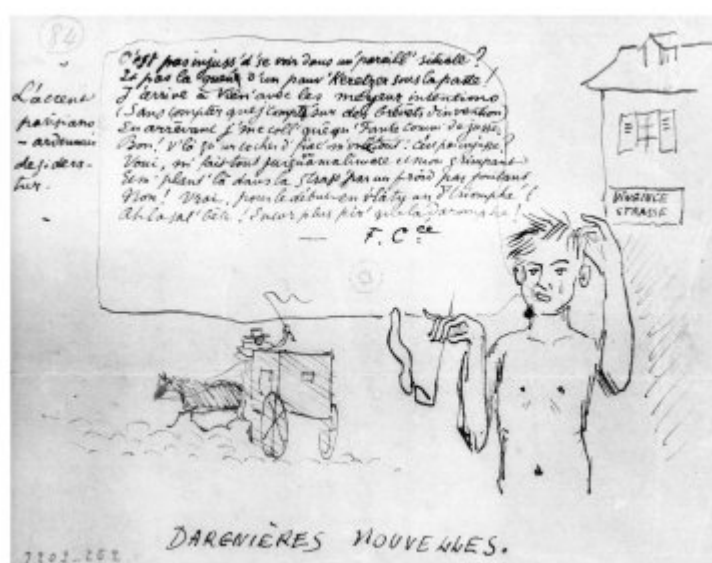 84
L'accent
parisiano
- ardennais
desidera-
tur.
C'est pas injuss' d'se voir dans un' pareill' situate ?
Et pas la gueul' d'un pauv' Kretzer sous la patte !
J'arrive à Vienn' avec les meyeur intentions
(Sans compter que j'compt' sur des brevets d'invention)
En arrêvant j'me coll' quéqu' comm' de jusse
Bon ! V'là qu'un cocher d' m'vol' tout : c'est pas injusse ?
Voui, m'fait tout jusqu'à ma limace et mon grimpant
Et m' plant' là dans la Strass' par un froid pas foutant
Non ! Vrai, pour le début en v'là ty un d'triomphe !
Ah la sal' bête ! Encor plus pir' que la daromphe !
F. C<sup>ée</sup>
STRASSE
DARGNIÈRES NOUVELLES.